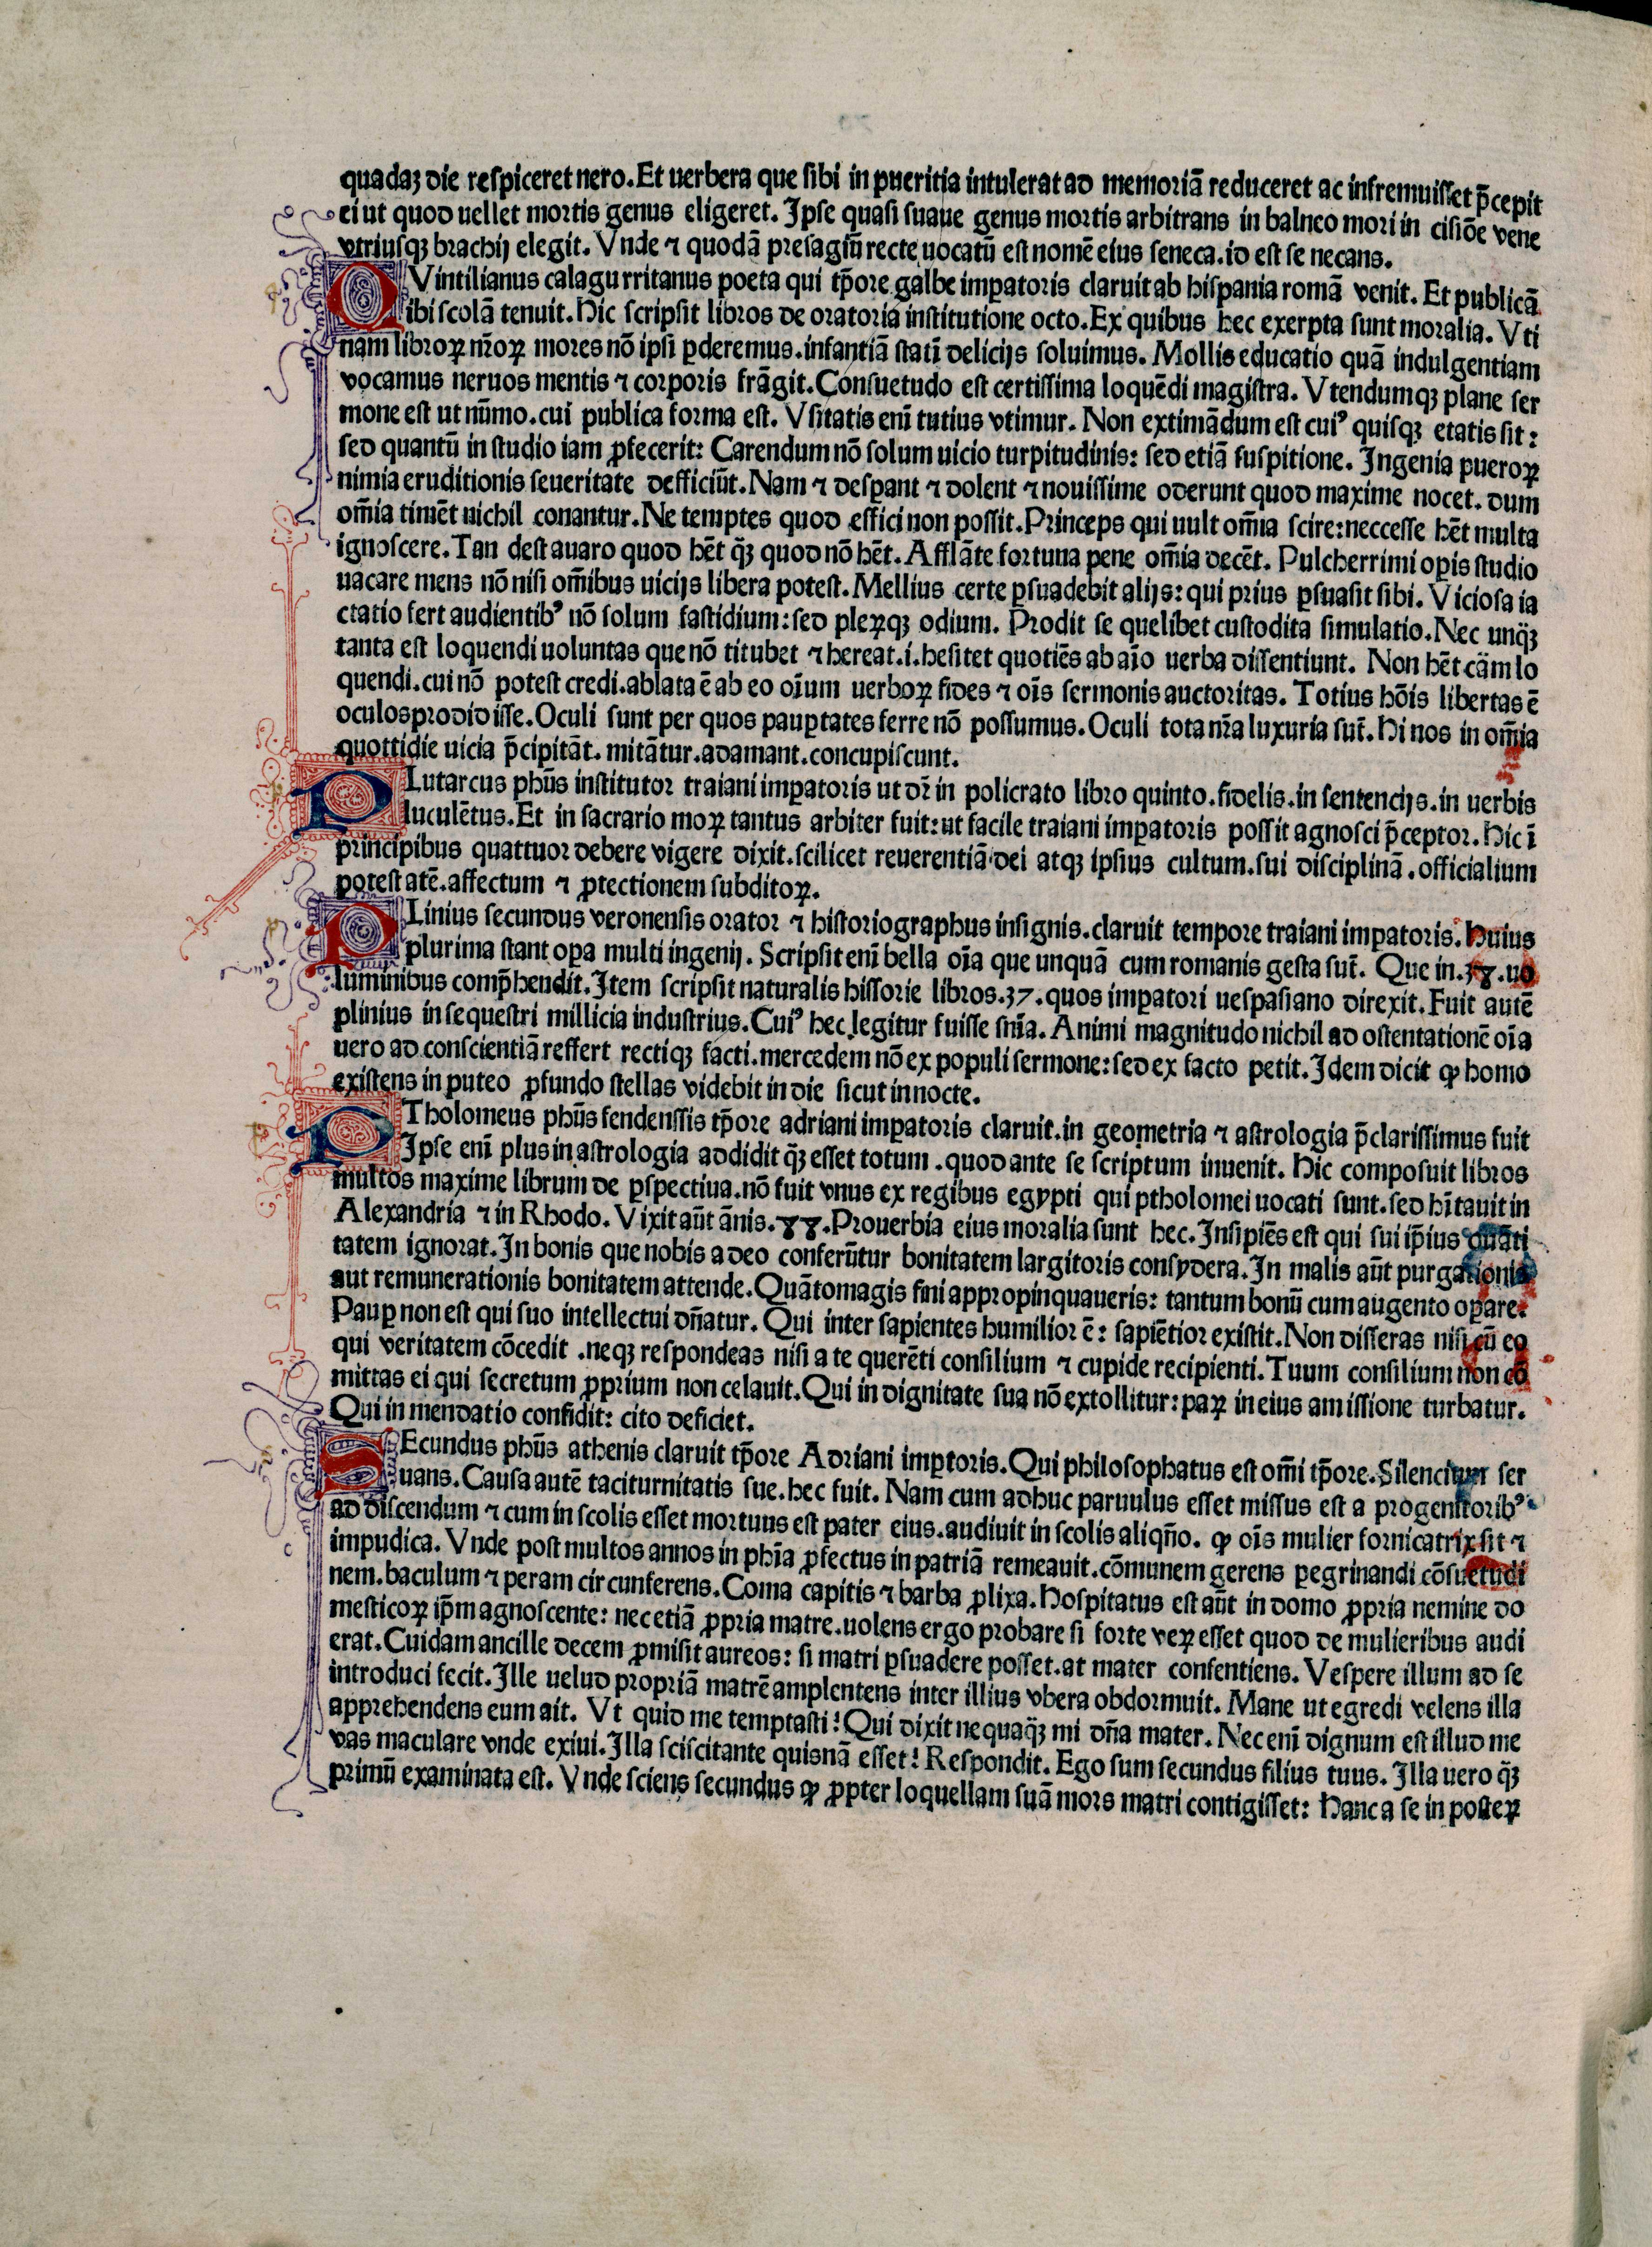 quadaꝫ die respiceret nero. Et uerbera que sibi in pueritia intulerat ad memoriā reduceret ac infremuisset p̄cepit
ei ut quod uellet mortis genus eligeret. Ipse quasi suaue genus mortis arbitrans in balneo mori in cisiōe vene
vtriusqꝫ brachij elegit. Vnde ⁊ quodā presagiū recte uocatū est nomē eius seneca. id est se necans.
QVintilianus calagurritanus poeta qui tp̄ore galbe imꝑatoris claruit ab hispania romā venit. Et publicā
ibi scolā tenuit. Hic scripsit libros de oratoria institutione octo. Ex quibus hec exerpta sunt moralia. Vti
nam libroꝝ nr̄oꝝ mores nō ipsi ꝑderemus. infantiā statī delicijs soluimus. Mollis educatio quā indulgentiam
vocamus neruos mentis ⁊ corporis frāgit. Consuetudo est certissima loquēdi magistra. Vtendumqꝫ plane ser
mone est ut nūmo. cui publica forma est. Vsitatis enī tutius vtimur. Non extimādum est cuiꝰ quisqꝫ etatis sit:
sed quantū in studio iam ꝓfecerit: Carendum nō solum uicio turpitudinis: sed etiā suspitione. Ingenia pueroꝝ
nimia eruditionis seueritate defficiūt. Nam ⁊ desꝑant ⁊ dolent ⁊ nouissime oderunt quod maxime nocet. dum
om̄ia timēt nichil conantur. Ne temptes quod effici non possit. Princeps qui uult om̄ia scire: neccesse hēt multa
ignoscere. Tan dest auaro quod hēt q̄ꝫ quod nō hēt. Afflāte fortuna pene om̄ia decēt. Pulcherrimi oꝑis studio
uacare mens nō nisi om̄ibus uicijs libera potest. Mellius certe ꝑsuadebit alijs: qui prius ꝑsuasit sibi. Viciosa ia
ctatio fert audientibꝰ nō solum fastidium: sed pleꝝqꝫ odium. Prodit se quelibet custodita simulatio. Nec unq̄ꝫ
tanta est loquendi uoluntas que nō titubet ⁊ hereat. i. hesitet quotiēs ab aīo uerba dissentiunt. Non hēt cām lo
quendi. cui nō potest credi. ablata ē ab eo oīum uerboꝝ fides ⁊ oīs sermonis auctoritas. Totius hōis libertas ē
oculos prodidisse. Oculi sunt per quos pauꝑtates ferre nō possumus. Oculi tota nr̄a luxuria sūt. Hi nos in om̄ia
quottidie uicia p̄cipitāt. mitātur. adamant. concupiscunt.
PLutarcus phūs institutor traiani imꝑatoris ut dr̄ in policrato libro quinto. fidelis. in sentencijs. in uerbis
luculētus. Et in sacrario moꝝ tantus arbiter fuit: ut facile traiani imꝑatoris possit agnosci p̄ceptor. Hic ī
principibus quattuor debere vigere dixit. scilicet reuerentiā dei atqꝫ ipsius cultum. sui disciplinā. officialium
potestatē. affectum ⁊ ꝓtectionem subditoꝝ.
PLinius secundus veronensis orator ⁊ historiographus insignis. claruit tempore traiani imꝑatoris. Huius
plurima stant oꝑa multi ingenij. Scripsit enī bella oīa que unquā cum romanis gesta sūt. Que in. 38. uo
luminibus comp̄hendit. Item scripsit naturalis hissorie libros. 37. quos imꝑatori uespasiano direxit. Fuit autē
plinius in sequestri millicia industrius. Cuiꝰ hec legitur fuisse snīa. Animi magnitudo nichil ad ostentationē oīa
uero ad conscientiā reffert rectiqꝫ facti. mercedem nō ex populi sermone: sed ex facto petit. Idem dicit ꝙ homo
existens in puteo ꝓfundo stellas videbit in die sicut in nocte.
PTholomeus phūs fendenssis tp̄ore adriani imꝑatoris claruit. in geometria ⁊ astrologia p̄clarissimus fuit
Ipse enī plus in astrologia addidit q̄ꝫ esset totum. quod ante se scriptum inuenit. Hic composuit libros
multos maxime librum de ꝑspectiua. nō fuit vnus ex regibus egypti qui ptholomei uocati sunt. sed hītauit in
Alexandria ⁊ in Rhodo. Vixit aūt ānis. 88. Prouerbia eius moralia sunt hec. Insipiēs est qui sui ip̄ius quāti
tatem ignorat. In bonis que nobis a deo conferūtur bonitatem largitoris consydera. In malis aūt purgationis
aut remunerationis bonitatem attende. Quātomagis fini appropinquaueris: tantum bonū cum augento oꝑare.
Pauꝑ non est qui suo intellectui dn̄atur. Qui inter sapientes humilior ē: sapiētior existit. Non disseras nisi cū eo
qui veritatem cōcedit. neqꝫ respondeas nisi a te querēti consilium ⁊ cupide recipienti. Tuum consilium non cō
mittas ei qui secretum ꝓprium non celauit. Qui in dignitate sua nō extollitur: paꝝ in eius amissione turbatur.
Qui in mendatio confidit: cito deficiet.
SEcundus phūs athenis claruit tp̄ore Adriani imꝑtoris. Qui philosophatus est om̄i tp̄ore. Silencium ser
uans. Causa autē taciturnitatis sue. hec fuit. Nam cum adhuc paruulus esset missus est a progenitoribꝰ
ad discendum ⁊ cum in scolis esset mortuus est pater eius. audiuit in scolis aliqn̄o. ꝙ oīs mulier fornicatrix sit ⁊
impudica. Vnde post multos annos in phīa ꝓfectus in patriā remeauit. cōmunem gerens ꝑegrinandi cōsuetudi
nem. baculum ⁊ peram circunferens. Coma capitis ⁊ barba ꝓlixa. Hospitatus est aūt in domo ꝓpria nemine do
mesticoꝝ ip̄m agnoscente: nec etiā ꝓpria matre. uolens ergo probare si forte veꝝ esset quod de mulieribus audi
erat. Cuidam ancille decem ꝓmisit aureos: si matri ꝑsuadere posset. at mater consentiens. Vespere illum ad se
introduci fecit. Ille uelud propriā matrē amplentens inter illius vbera obdormuit. Mane ut egredi velens illa
apprehendens eum ait. Vt quid me temptasti? Qui dixit nequaq̄ꝫ mi dn̄a mater. Nec enī dignum est illud me
vas maculare vnde exiui. Illa sciscitante quisnā esset? Respondit. Ego sum secundus filius tuus. Illa uero q̄ꝫ
primū examinata est. Vnde sciens secundus ꝙ ꝓpter loquellam suā mors matri contigisset: Hanc a se in posteꝝ